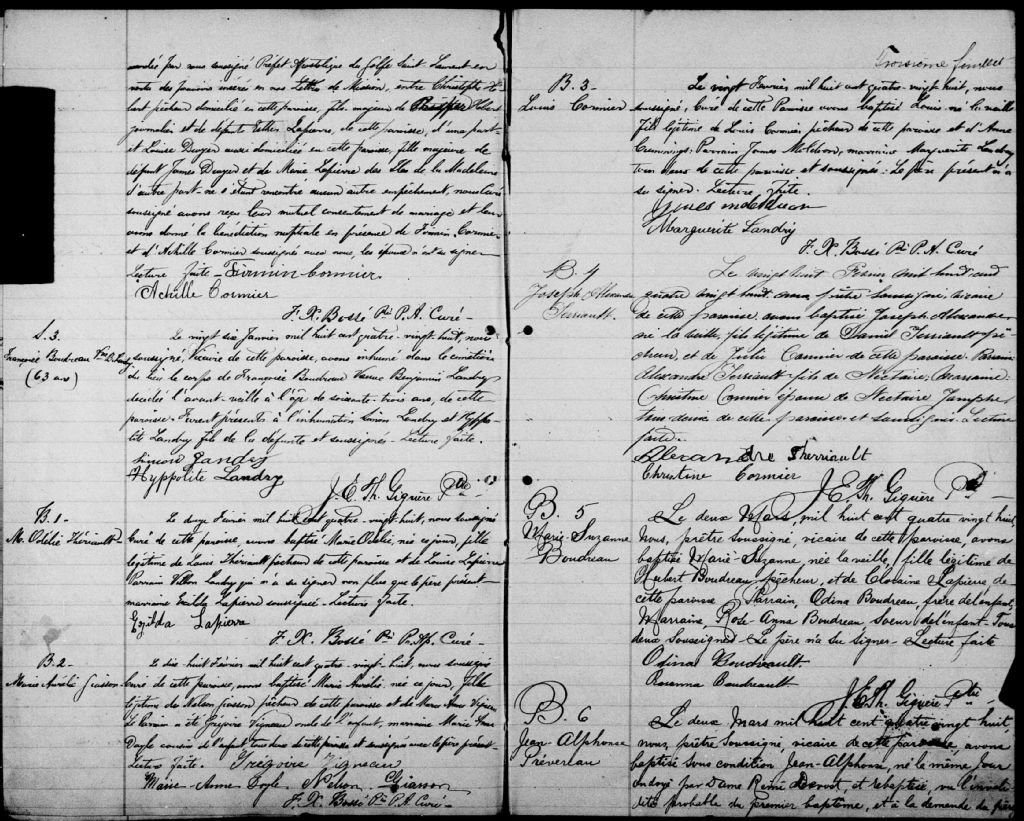 cordée par nous soussigné Préfet Apostolique du Golfe Saint Laurent en
vertu des pouvoirs insérés en nos Lettres de Mission, entre Christophe
pêcheur domicilié en cette paroisse, fils majeur de
journalier et de défunte Esther Lapierre, de cette paroisse, d'une part
et Louise aussi domiciliée en cette paroisse, fille majeure de
défunt James et de Marie Lapierre des Iles de la Madeleine
d'autre part - ne s'étant rencontré aucun autre empêchement, nous Curé
soussigné avons reçu leur mutuel consentement de mariage et leur
avons donné la bénédiction nuptiale en présence de Firmin Cormier
et d'Achille Cormier soussignés avec nous, les époux n'ont su signer
Lecture faite - Firmin Cormier
Achille Cormier
F. X. Bossé Ptre P. A. Curé -
S. 3.
Françoise Boudreau Vve B. Landry
(63 ans)
Le vingt six Janvier mil huit cent quatre-vingt-huit, nous
soussigné, Vicaire de cette paroisse, avons inhumé dans le cimetière
du lieu le corps de Françoise Boudreau Veuve Benjamin Landry
décédée l'avant-veille à l'âge de soixante-trois ans, de cette
paroisse. Furent présents à l'inhumation Simon Landry et Hyppo-
lite Landry fils de la défunte et soussignés - Lecture faite.
Simon Landry
Hyppolite Landry
J. E. Th. Giguère Ptre
B. 1 -
M. Odélie Thériault -
Le douze Février mil huit cent quatre-vingt huit, nous soussigné
Curé de cette paroisse, avons baptisé Marie Odélie, née ce jour, fille
légitime de Louis Thériault pêcheur de cette paroisse et de Louise Lapierre
Parrain Landry qui n'a su signer non plus que le père présent -
marraine Lapierre soussignée - Lecture faite.
Ezilda Lapierre
F. X. Bossé Ptre P. A. Curé -
B. 2 -
Marie Aurélie Giasson
Le dix-huit Février mil huit cent quatre-vingt-huit, nous soussigné
Curé de cette paroisse, avons baptisé Marie Aurélie née ce jour, fille
légitime de Nelson Giasson pêcheur de cette paroisse et de Marie Anne Vigneau
Le Parrain a été Grégoire Vigneau oncle de l'enfant, marraine Marie Anne
Doyle cousine de l'enfant tous deux de cette paroisse et soussignés avec le père présent -
Lecture faite. Grégoire Vigneau
Marie-Anne Doyle Nelson Giasson
F. X. Bossé Ptre P. A. Curé -
Troisième feuillet
B. 3 -
Louis Cormier
Le vingt Février mil huit cent quatre-vingt huit, nous
soussigné, Curé de cette Paroisse avons baptisé Louis né la veille
fils légitime de Louis Cormier pêcheur de cette paroisse et d'Anne
Cummings; Parrain James marraine Marguerite Landry
tous deux de cette paroisse et soussignés; Le père présent n'a
su signer. Lecture faite.
James
Marguerite Landry
F. X. Bossé Ptre P. A. Curé
B. 4
Joseph Alexandre
Terriault.
Le vingt huit Février mil huit cent
quatre vingt huit, nous prêtre soussigné, vicaire
de cette paroisse, avons baptisé Joseph Alexandre
né la veille, fils légitime de Terriault pê-
cheur, et de Julie Cormier de cette paroisse. Parrain
Alexandre Terriault fils de Nectaire, Marraine
Christine Cormier épouse de Nectaire
tous deux de cette paroisse et soussignés. Lecture
faite.
Alexandre Therriault
Christine Cormier
J. E. Th. Giguère Ptre
B. 5
Marie-Suzanne
Boudreau
Le deux Mars, mil huit cent quatre vingt huit,
Nous, prêtre soussigné, vicaire de cette paroisse, avons
baptisé Marie-Suzanne, née la veille, fille légitime de
Hubert Boudreau pêcheur, et de Lapierre de
cette paroisse. Parrain, Odina Boudreau, frère de l'enfant,
Marraine, Rose-Anna Boudreau soeur de l'enfant. Tous
deux soussignés. Le père n'a su signer - Lecture faite
Odina Boudreault
Rosanna Boudreault
J. E. Th. Giguère Ptre
B. 6
Jean-Alphonse
Prévereau
Le deux Mars mil huit cent quatre vingt huit,
nous, prêtre soussigné, vicaire de cette paroisse, avons
baptisé sous condition Jean-Alphonse, né le même jour
ondoyé par Dame Rémi et rebaptisé, vu l'invali-
dité probable du premier baptême, et à la demande du père